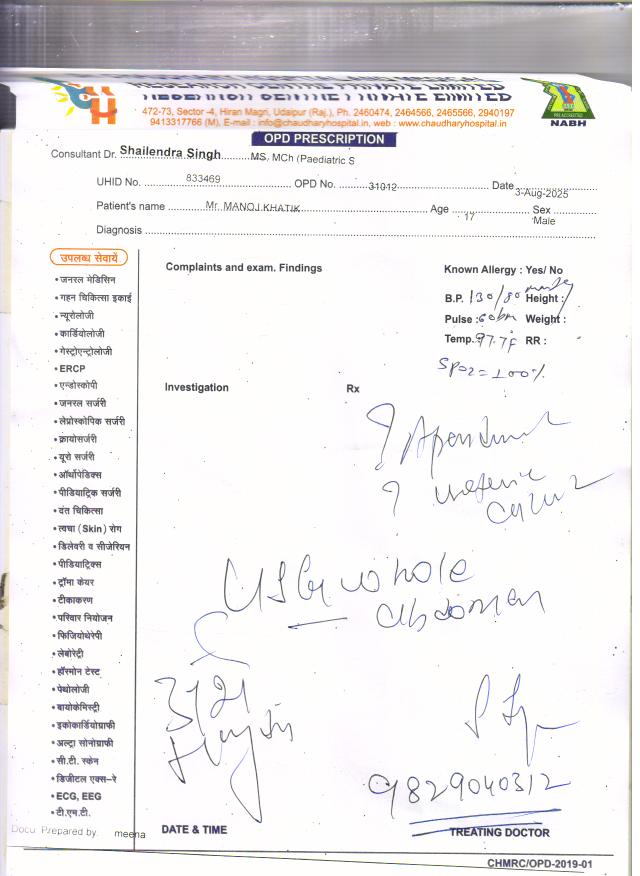 472-73, Sector -4, Hiran Magri, Udaipur (Raj.), Ph. 2460474, 2464566, 2465566, 2940197
9413317766 (M), E-mail : info@chaudharyhospital.in, web : www.chaudharyhospital.in
NABH
OPD PRESCRIPTION
Consultant Dr. Shailendra Singh MS, MCh (Paediatric S
UHID No. 833469 OPD No. 31012 Date 3-Aug-2025
Patient's name Mr. MANOJ KHATIK Age 17 Sex Male
Diagnosis
उपलब्ध सेवायें
Complaints and exam. Findings
Known Allergy : Yes/ No
• जनरल मेडिसिन
• गहन चिकित्सा इकाई
B.P. 130/80 Height :
• न्यूरोलोजी
Pulse : 60bm Weight :
• कार्डियोलोजी
Temp. 97.7f RR :
• गेस्ट्रोएन्ट्रोलोजी
• ERCP
SPO2 = 100%
• एन्डोस्कोपी
Investigation Rx
• जनरल सर्जरी
• लेप्रोस्कोपिक सर्जरी
• क्रायोसर्जरी
• यूरो सर्जरी
• ऑर्थोपेडिक्स
• पीडियाट्रिक सर्जरी
? ureteric
• दंत चिकित्सा
• त्वचा (Skin) रोग
• डिलेवरी व सीजेरियन
• पीडियाट्रिक्स
USG whole
abdomen
• ट्रॉमा केयर
• टीकाकरण
• परिवार नियोजन
• फिजियोथेरेपी
• लेबोरेट्री
• हॉरमोन टेस्ट
• पेथोलोजी
• बायोकेमिस्ट्री
• इकोकार्डियोग्राफी
• अल्ट्रा सोनोग्राफी
• सी.टी. स्केन
• डिजीटल एक्स-रे
9829040312
• ECG, EEG
• टी.एम.टी.
Docu Prepared by. meena
DATE & TIME
TREATING DOCTOR
CHMRC/OPD-2019-01